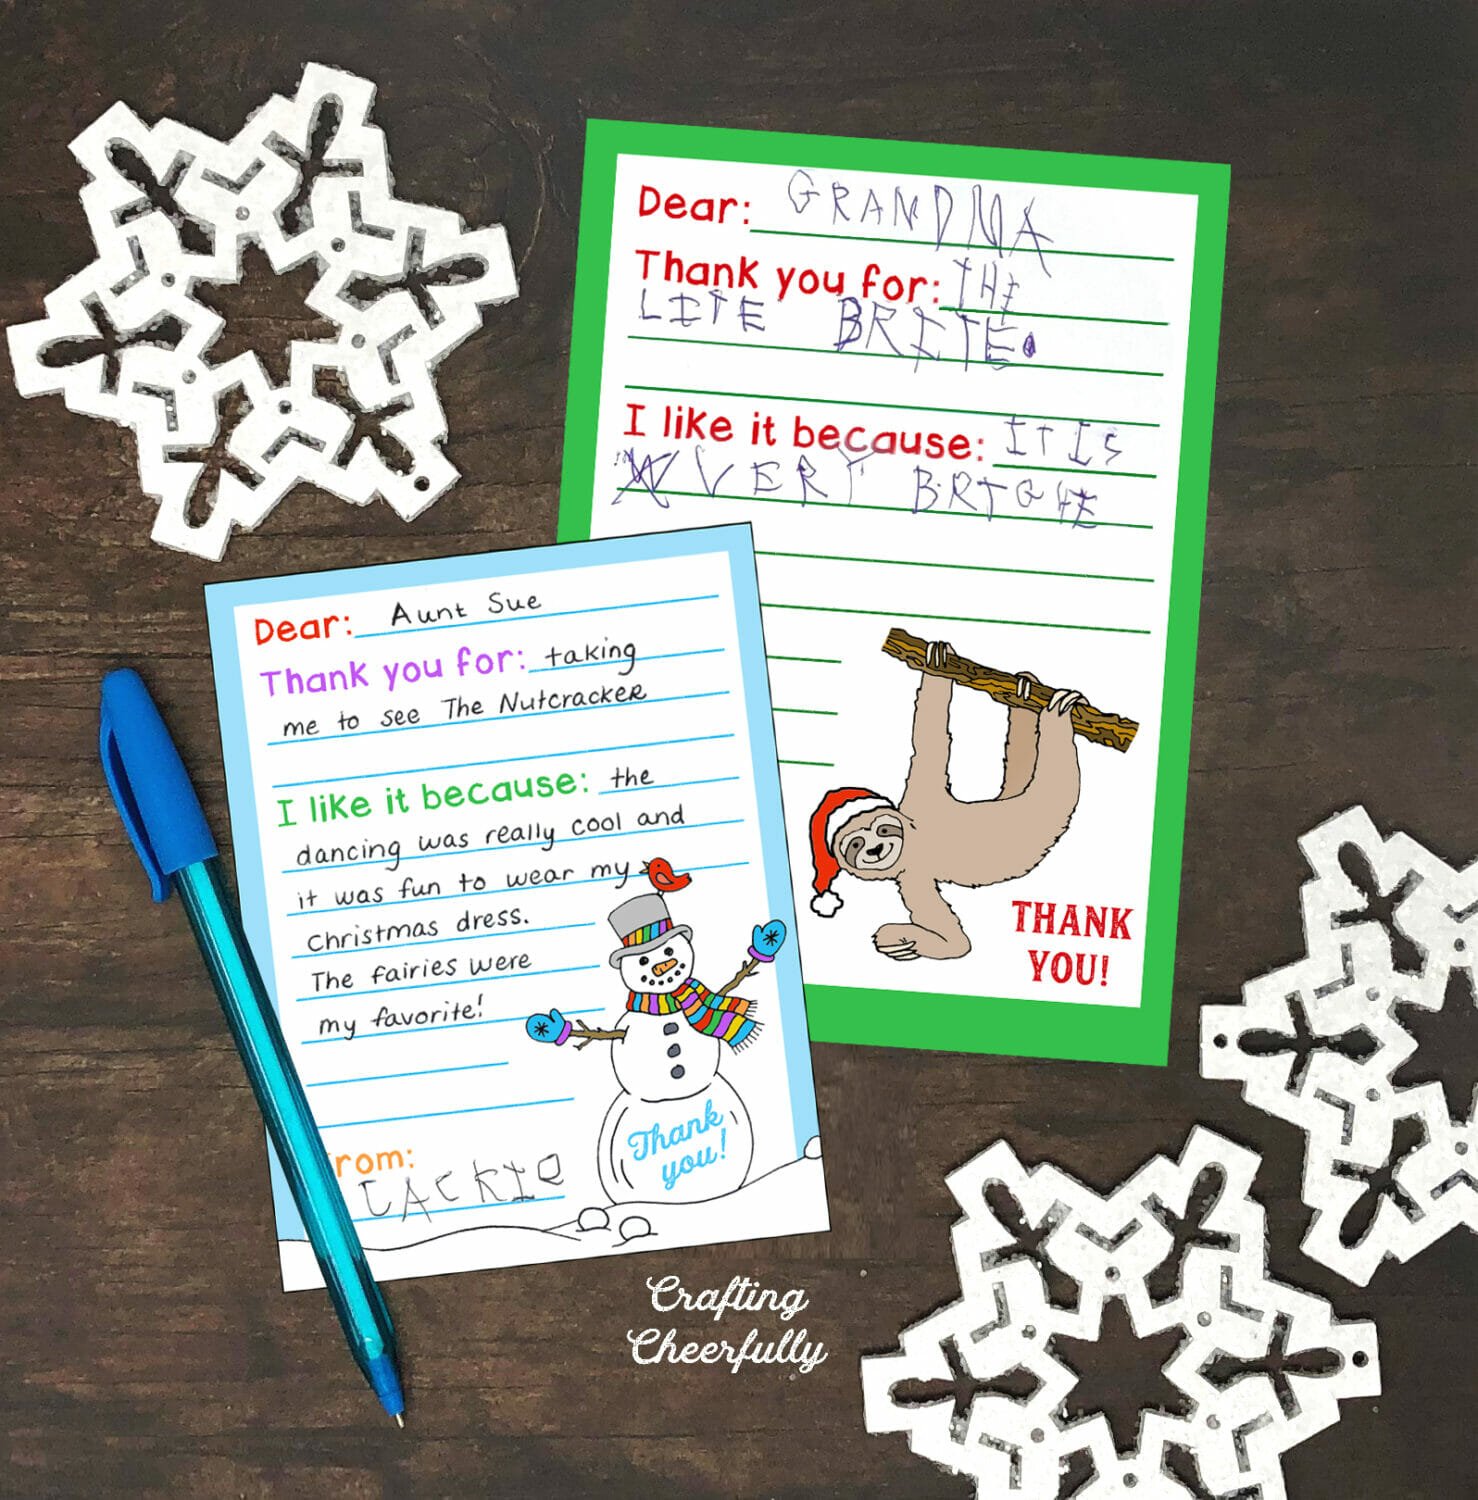 Dear: GRANDMA
Thank you for: THE
LITE BRITE.
I like it because: IT IS
VERY BRIGHT
THANK
YOU!
Dear: Aunt Sue
Thank you for: taking
me to see The Nutcracker
I like it because: the
dancing was really cool and
it was fun to wear my
Christmas dress.
The fairies were
my favorite!
rom:
JACKIE
Thank
you!
Crafting
Cheerfully